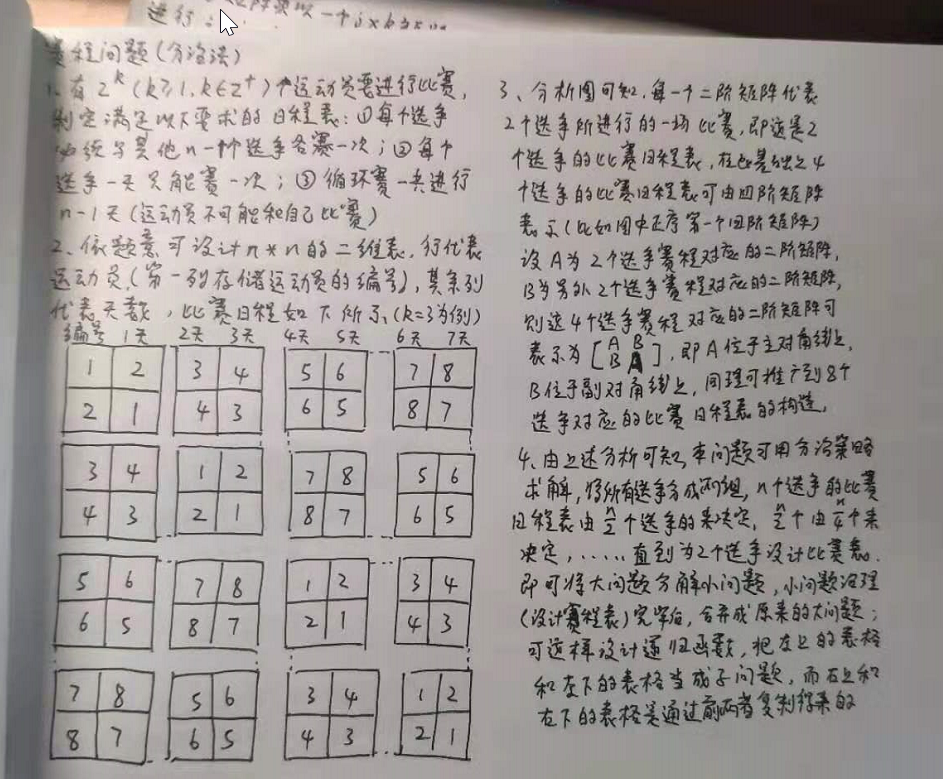 进行
一个
赛程问题(分治法)
1、有2^k(k≥1,k∈Z⁺)个运动员要进行比赛,
制定满足以下要求的日程表:①每个选手
必须与其他n-1个选手各赛一次;②每个
选手一天只能赛一次;③循环赛一共进行
n-1天(运动员不可能和自己比赛)
2、依题意可设计n*n的二维表,行代表
运动员(第一列存储运动员的编号),其余列
代表天数,比赛日程如下所示(k=3为例)
编号 1天 2天 3天 4天 5天 6天 7天
1 2 3 4 5 6 7 8
2 1 4 3 6 5 8 7
3 4 1 2 7 8 5 6
4 3 2 1 8 7 6 5
5 6 7 8 1 2 3 4
6 5 8 7 2 1 4 3
7 8 5 6 3 4 1 2
8 7 6 5 4 3 2 1
3、分析图可知,每一个二阶矩阵代表
2个选手所进行的一场比赛,即这是2
个选手的比赛日程表,在此基础之4
个选手的比赛日程表可由四阶矩阵
表示(比如图中正序第一个四阶矩阵)
设A为2个选手赛程对应的二阶矩阵,
B为另外2个选手赛程对应的二阶矩阵,
则这4个选手赛程对应的二阶矩阵可
表示为[A B
B A],即A位于主对角线上,
B位于副对角线上,同理可推广到8个
选手对应的比赛日程表的构造,
4、由上述分析可知,本问题可用分治策略
求解,将所有选手分成两组,n个选手的比赛
日程表由n/2个选手的来决定,n/2个由n/4个来
决定,……直到为2个选手设计比赛表.
即可将大问题分解小问题,小问题治理
(设计赛程表)完毕后,合并成原来的大问题;
可这样设计递归函数,把左上的表格
和左下的表格当成子问题,而右上和
右下的表格是通过前两者复制得来的